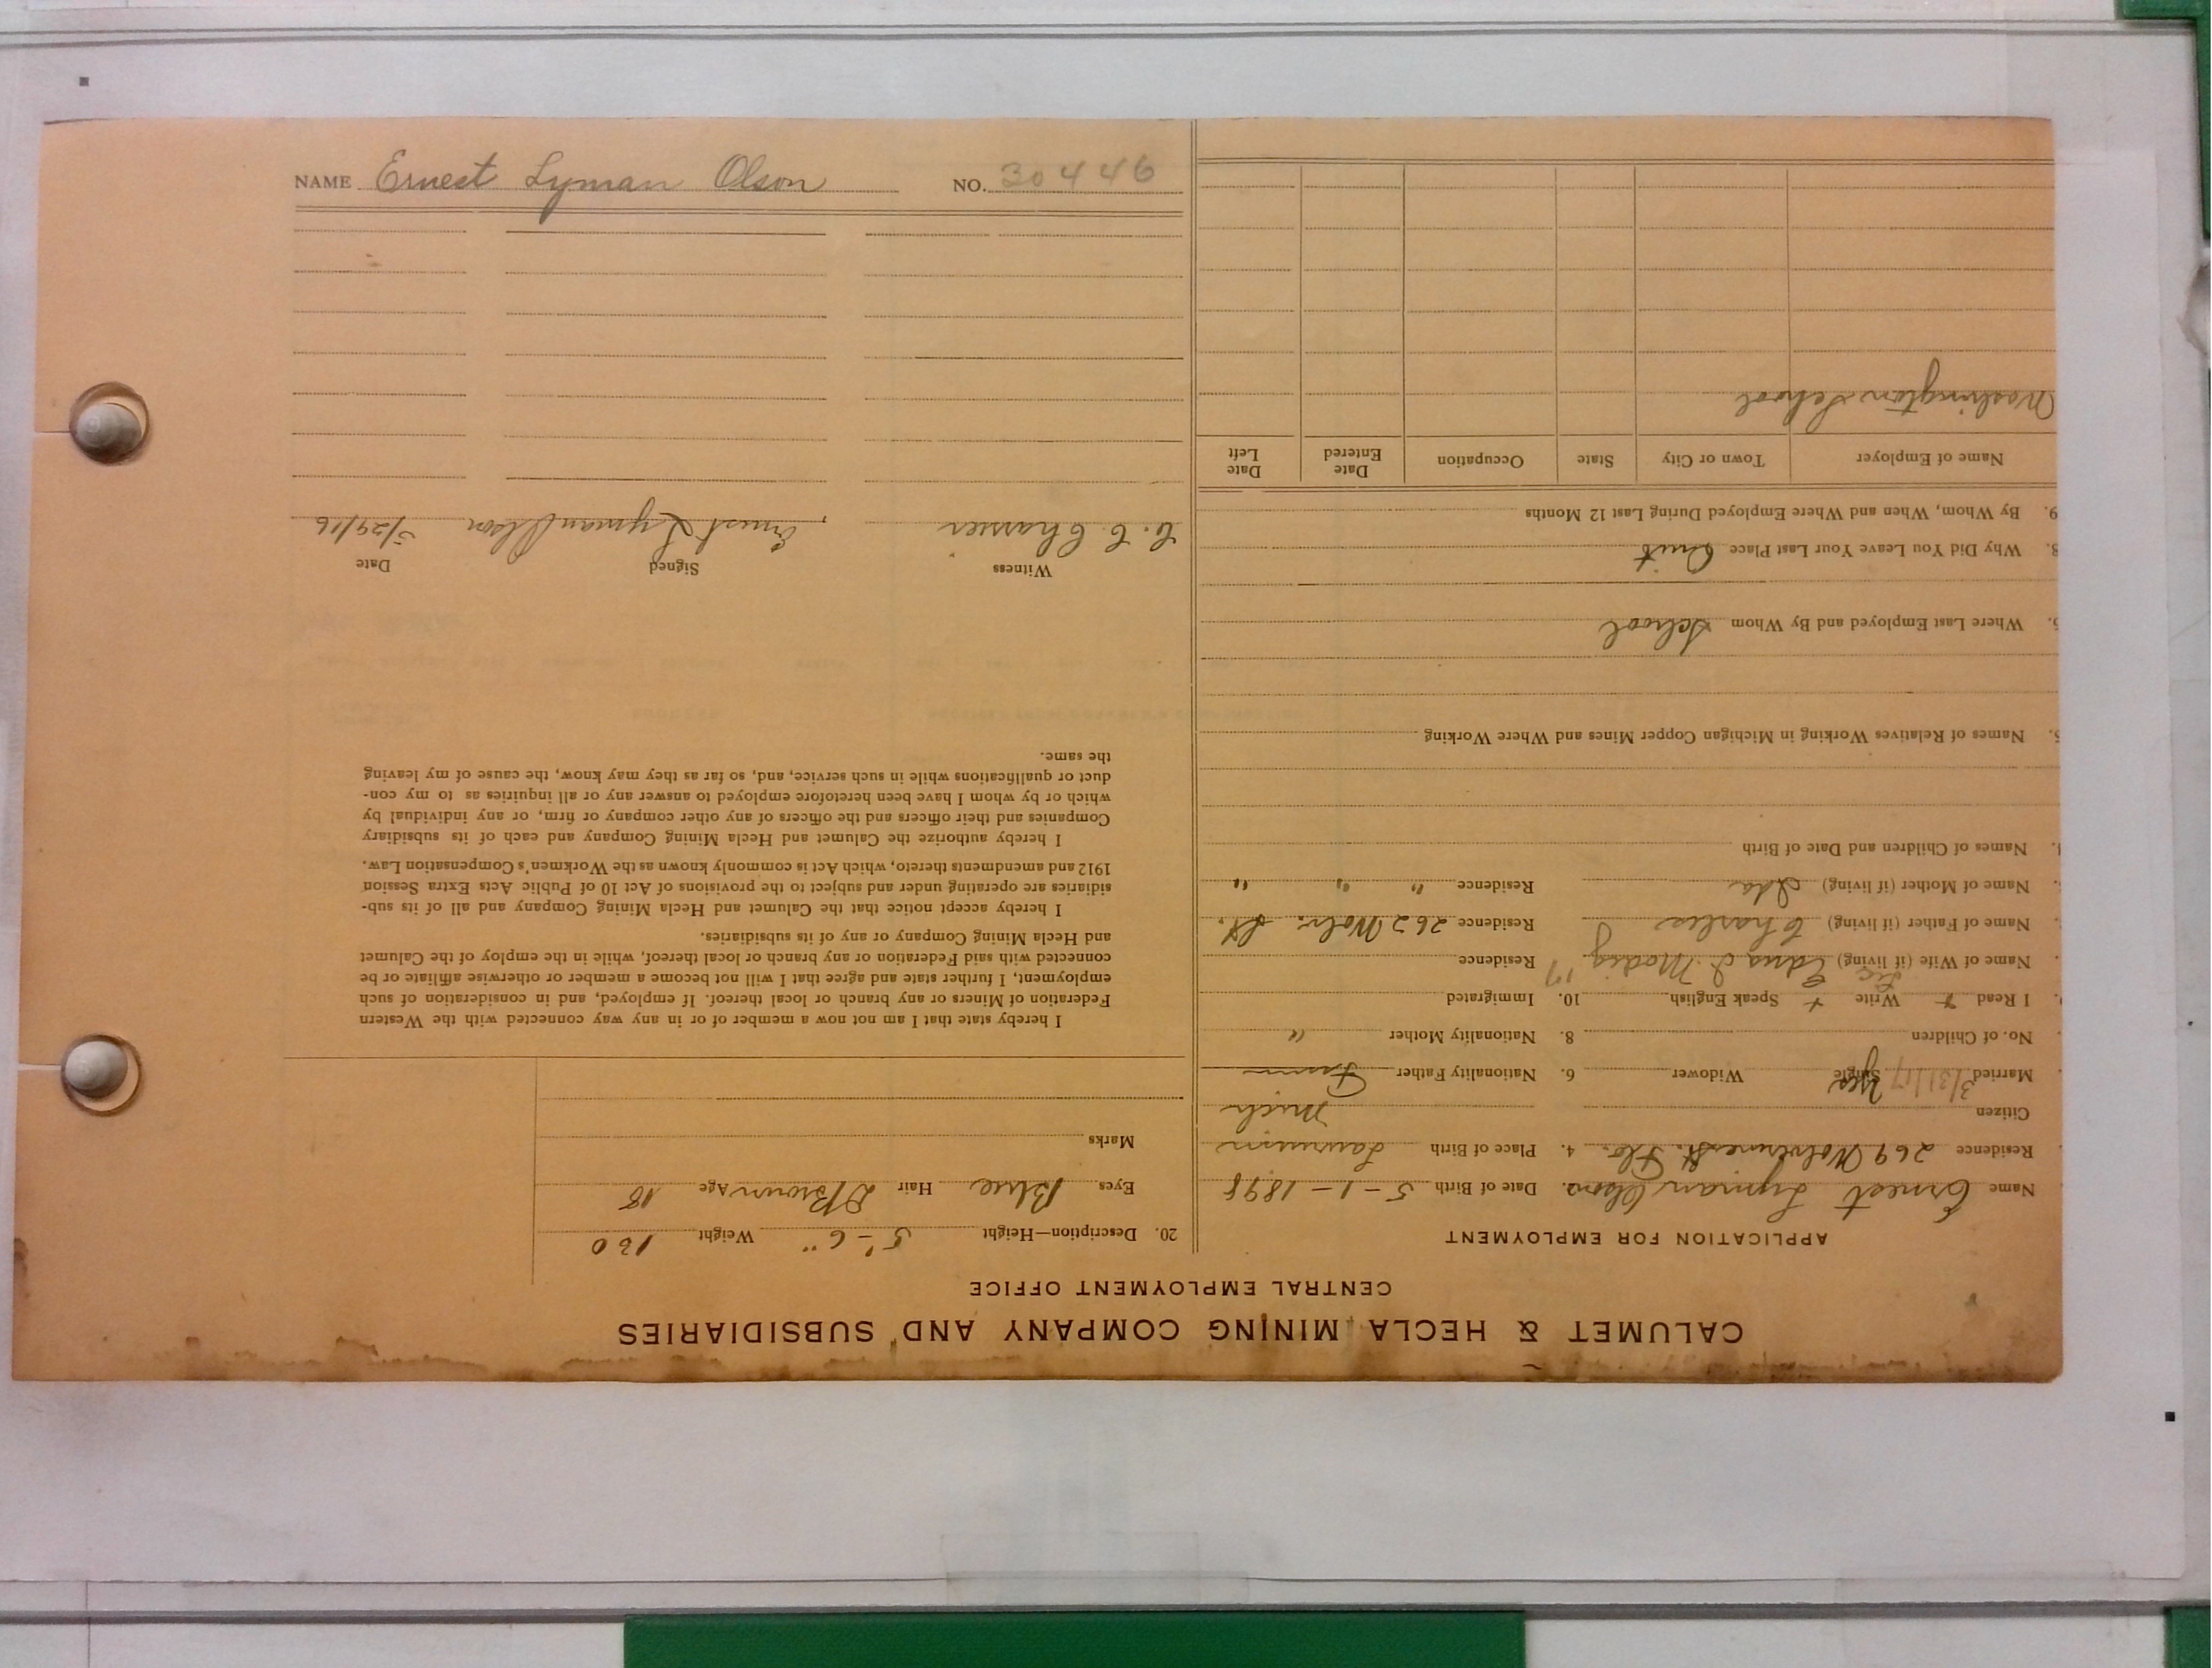 NAME Ernest Lyman Olson NO. 30446
CALUMET & HECLA MINING COMPANY AND SUBSIDIARIES
CENTRAL EMPLOYMENT OFFICE
APPLICATION FOR EMPLOYMENT
Name Ernest Lyman Olson Date of Birth 5-1-1898
Residence 269 Wolverine St. 4. Place of Birth Laurium
Citizen Mich
Married 3/31/17 Single Yes Widower 6. Nationality Father
No. of Children 8. Nationality Mother "
I Read + Write + Speak English 10. Immigrated
Name of Wife (if living) Edna J. Residence
Name of Father (if living) Charles Residence 262 Wolv. St.
Name of Mother (if living) Ida Residence " " "
Names of Children and Date of Birth
5. Names of Relatives Working in Michigan Copper Mines and Where Working
6. Where Last Employed and By Whom School
8. Why Did You Leave Your Last Place Quit
9. By Whom, When and Where Employed During Last 12 Months
Name of Employer Town or City State Occupation Date Entered Date Left
Washington School
20. Description—Height 5'-6" Weight 130
Eyes Blue Hair D Brown Age 18
Marks
I hereby state that I am not now a member of or in any way connected with the Western
Federation of Miners or any branch or local thereof. If employed, and in consideration of such
employment, I further state and agree that I will not become a member or otherwise affiliate or be
connected with said Federation or any branch or local thereof, while in the employ of the Calumet
and Hecla Mining Company or any of its subsidiaries.
I hereby accept notice that the Calumet and Hecla Mining Company and all of its sub-
sidiaries are operating under and subject to the provisions of Act 10 of Public Acts Extra Session
1912 and amendments thereto, which Act is commonly known as the Workmen's Compensation Law.
I hereby authorize the Calumet and Hecla Mining Company and each of its subsidiary
Companies and their officers and the officers of any other company or firm, or any individual by
which or by whom I have been heretofore employed to answer any or all inquiries as to my con-
duct or qualifications while in such service, and, so far as they may know, the cause of my leaving
the same.
Witness Signed Date
C. C. Ernest Lyman Olson 5/29/16